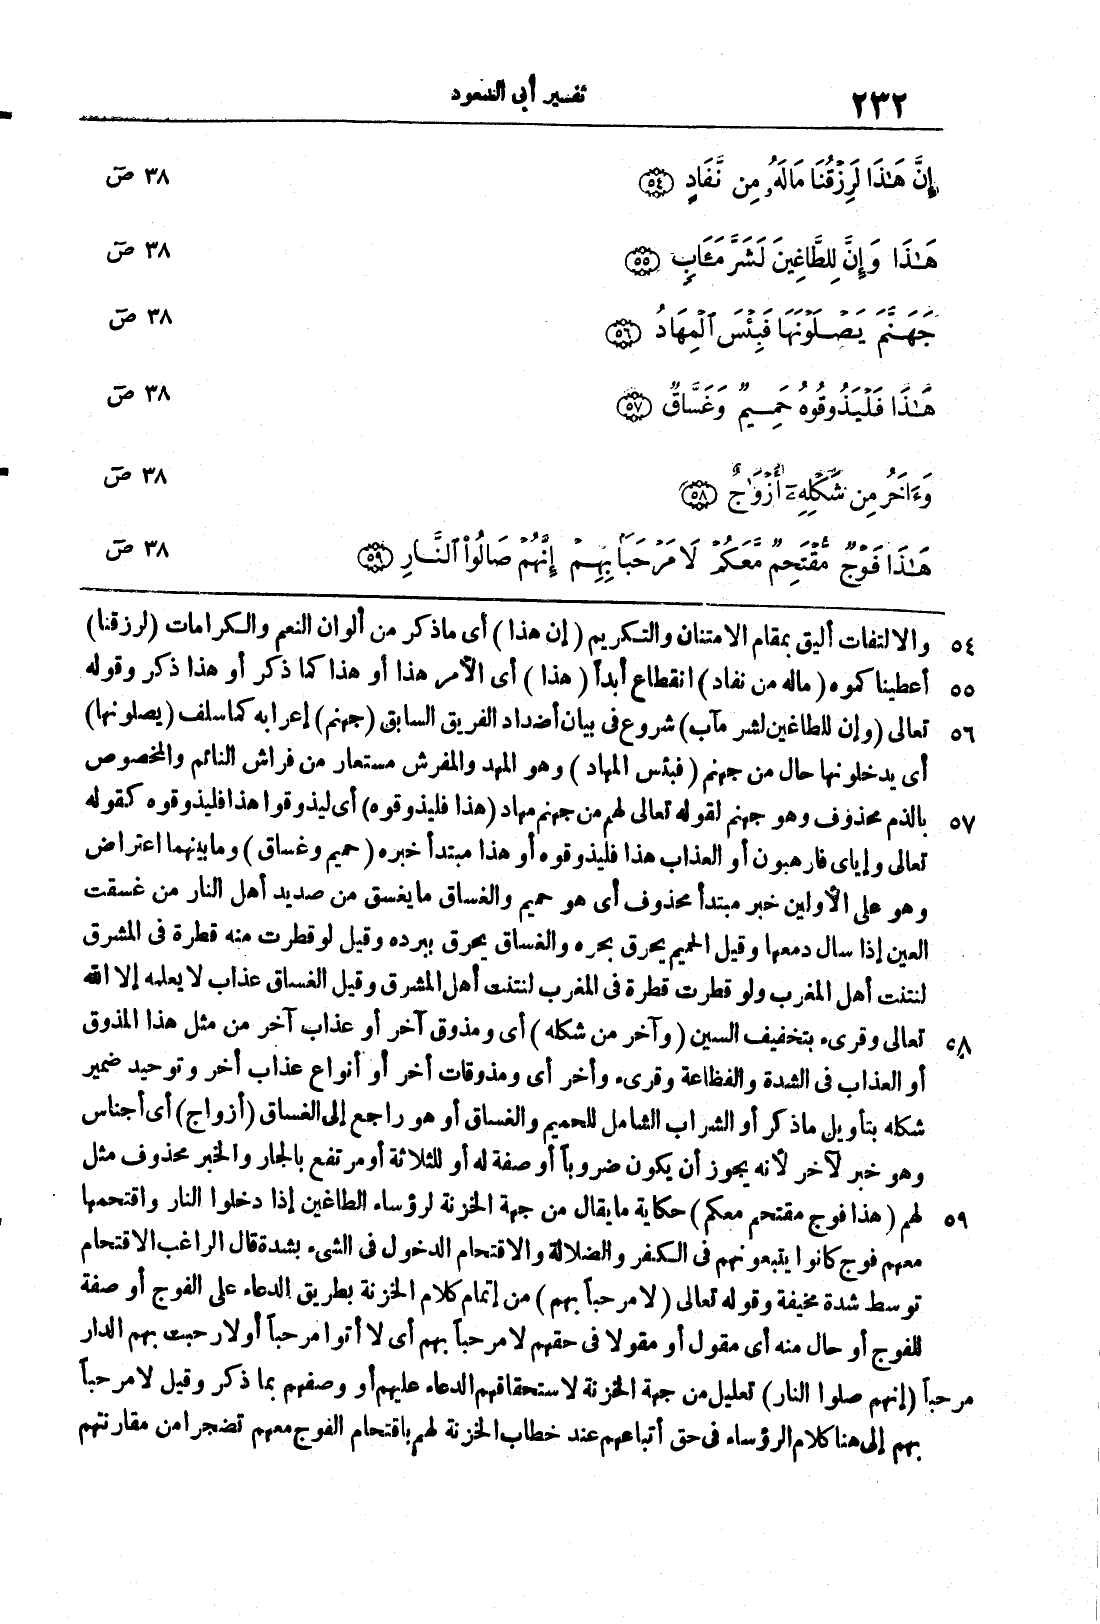 ٢٣٢ تفسير أبى السعود
إِنَّ هَٰذَا لَرِزْقُنَا مَالَهُۥ مِن نَّفَادٍ ٥٤ ٣٨ صٓ
هَٰذَا وَإِنَّ لِلطَّاغِينَ لَشَرَّ مَـَٔابٍ ٥٥ ٣٨ صٓ
جَهَنَّمَ يَصْلَوْنَهَا فَبِئْسَ ٱلْمِهَادُ ٥٦ ٣٨ صٓ
هَٰذَا فَلْيَذُوقُوهُ حَمِيمٌ وَغَسَّاقٌ ٥٧ ٣٨ صٓ
وَءَاخَرُ مِن شَكْلِهِۦٓ أَزْوَٰجٌ ٥٨ ٣٨ صٓ
هَٰذَا فَوْجٌ مُّقْتَحِمٌ مَّعَكُمْ لَا مَرْحَبًا بِهِمْ إِنَّهُمْ صَالُوا۟ ٱلنَّارِ ٥٩ ٣٨ صٓ
٥٤ والالتفات أليق بمقام الامتنان والتكريم (إن هذا) أى ماذكر من ألوان النعم والكرامات (لرزقنا)
٥٥ أعطيناكموه (ماله من نفاد) انقطاع أبداً (هذا) أى الأمر هذا أو هذا كما ذكر أو هذا ذكر وقوله
٥٦ تعالى (وإن للطاغين لشر مآب) شروع فى بيان أضداد الفريق السابق (جهنم) إعرابه كما سلف (يصلونها)
أى يدخلونها حال من جهنم (فبئس المهاد) وهو المهد والمفرش مستعار من فراش النائم والمخصوص
٥٧ بالذم محذوف وهو جهنم لقوله تعالى لهم من جهنم مهاد (هذا فليذوقوه) أى ليذوقوا هذا فليذوقوه كقوله
تعالى وإياى فارهبون أو العذاب هذا فليذوقوه أو هذا مبتدأ خبره (حميم وغساق) ومابينهما اعتراض
وهو على الأولين خبر مبتدأ محذوف أى هو حميم والغساق مايغسق من صديد أهل النار من غسقت
العين إذا سال دمعها وقيل الحميم يحرق بحره والغساق يحرق ببرده وقيل لوقطرت منه قطرة فى المشرق
لنتنت أهل المغرب ولو قطرت قطرة فى المغرب لنتنت أهل المشرق وقيل الغساق عذاب لا يعلمه إلا الله
٥٨ تعالى وقرىء بتخفيف السين (وآخر من شكله) أى ومذوق آخر أو عذاب آخر من مثل هذا المذوق
أو العذاب فى الشدة والفظاعة وقرىء وأخر أى ومذوقات أخر أو أنواع عذاب أخر وتوحيد ضمير
شكله بتأويل ماذكر أو الشراب الشامل للحميم والغساق أو هو راجع إلى الغساق (أزواج) أى أجناس
وهو خبر لآخر لأنه يجوز أن يكون ضروباً أو صفة له أو للثلاثة أو مرتفع بالجار والخبر محذوف مثل
٥٩ لهم (هذا فوج مقتحم معكم) حكاية مايقال من جهة الخزنة لرؤساء الطاغين إذا دخلوا النار واقتحمها
معهم فوج كانوا يتبعونهم فى الكفر والضلالة والاقتحام الدخول فى الشىء بشدة قال الراغب الاقتحام
توسط شدة مخيفة وقوله تعالى (لا مرحباً بهم) من إتمام كلام الخزنة بطريق الدعاء على الفوج أو صفة
للفوج أو حال منه أى مقول أو مقولا فى حقهم لا مرحباً بهم أى لا أتوا مرحباً أولا رحبت بهم الدار
مرحباً (إنهم صلوا النار) تعليل من جهة الخزنة لاستحقاقهم الدعاء عليهم أو وصفهم بما ذكر وقيل لا مرحباً
بهم إلى هنا كلام الرؤساء فى حق أتباعهم عند خطاب الخزنة لهم باقتحام الفوج معهم تضجرا من مقارنتهم